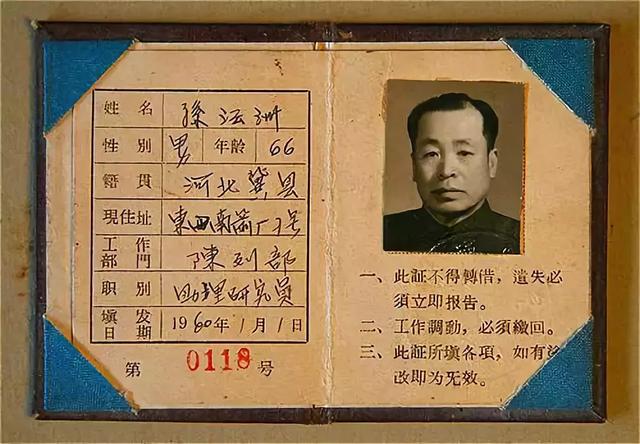 姓名 孫瀛洲
性别 男 年龄 66
籍貫 河北冀县
現住址 東四南箭厂7号
工作部門 陳列部
职别 助理研究員
填发日期 1960年1月1日
第 0118 号
一、此証不得轉借，遺失必
須立即报告。
二、工作調動，必須繳回。
三、此証所填各項，如有涂
改即为无效。